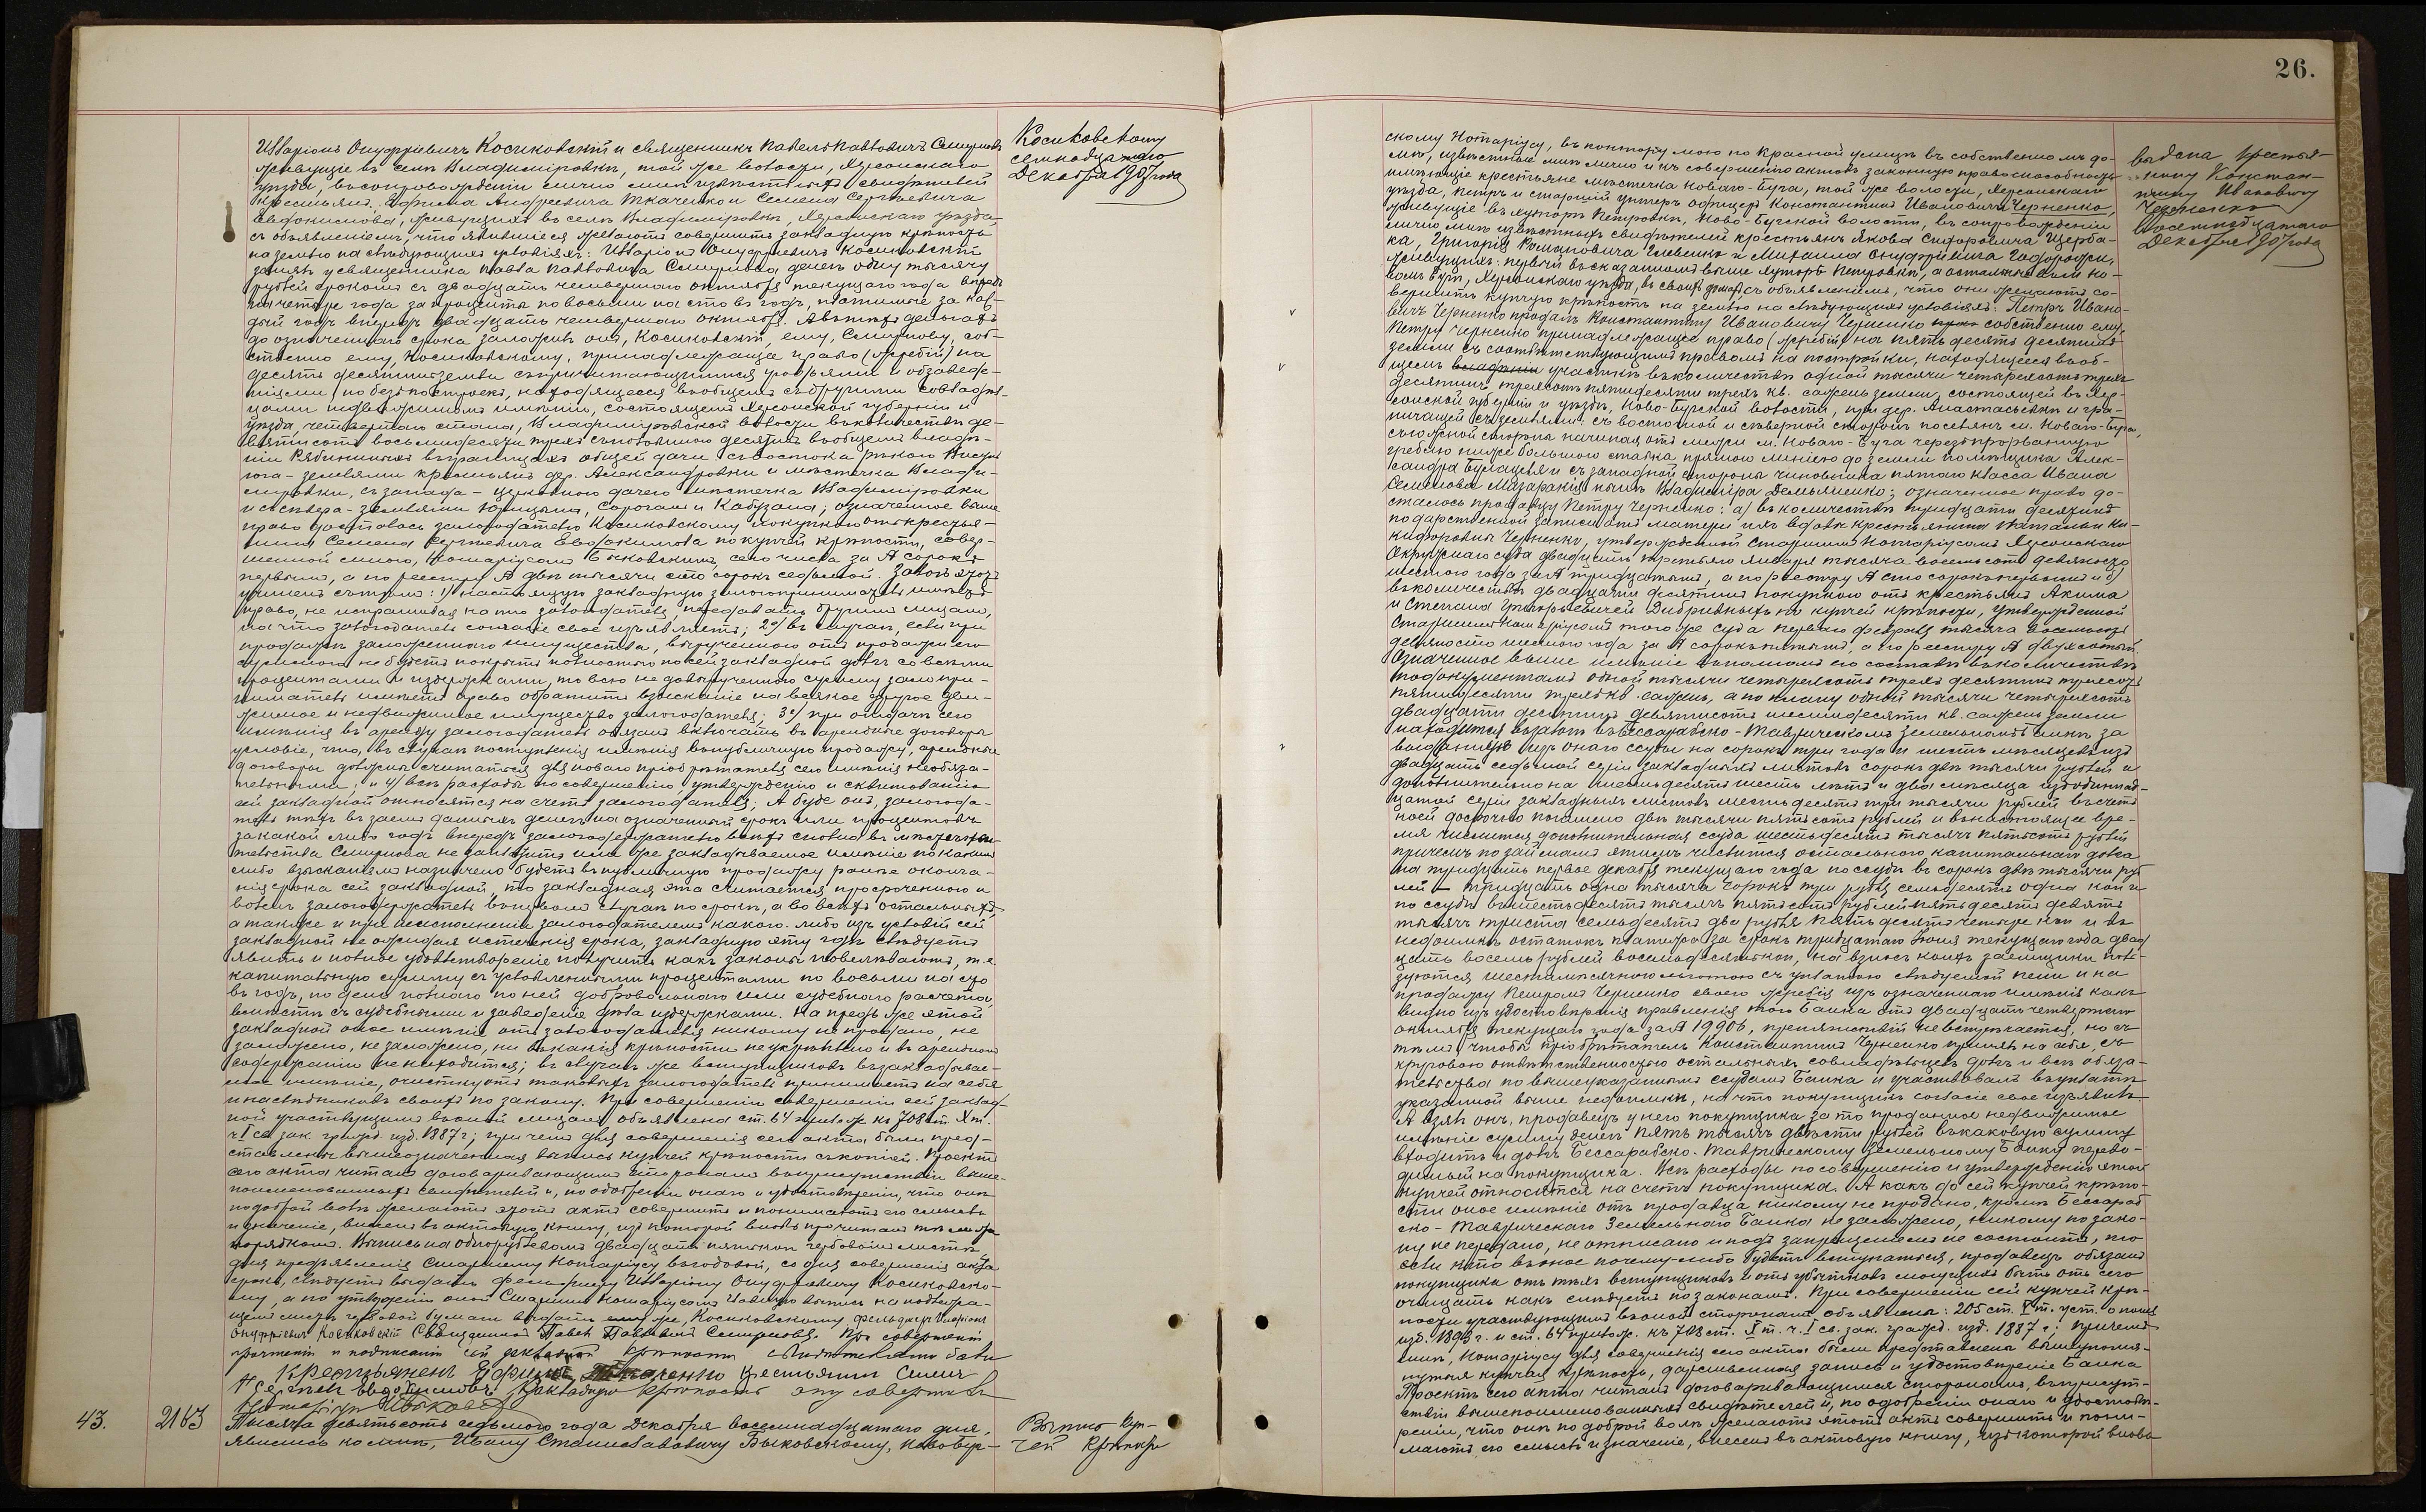 Илларіонъ Онуфріевичъ Косиковскій и священникъ Павелъ Павловичъ Смирновъ
живущіе въ селѣ Владиміровкѣ, той же волости, Херсонскаго
уѣзда, въ сопровожденіи лично мнѣ извѣстныхъ свидѣтелей
крестьянъ: Ефима Андреевича Ткаченко и Семена Сергѣевича
Евдокимова, живущихъ въ селѣ Владиміровкѣ, Херсонскаго уѣзда,
съ объявленіемъ, что явившіеся желаютъ совершить закладную крѣпость
на землю на слѣдующихъ условіяхъ: Илларіонъ Онуфріевичъ Косиковскій
занялъ у священника Павла Павловича Смирнова денегъ одну тысячу
рублей срокомъ съ двадцать четвертаго октября текущаго года впредь
на четыре года за проценты по восьми на сто въ годъ, платимые за каж-
дый годъ впередъ двадцать четвертаго октября. А въ тѣхъ деньгахъ
до означеннаго срока заложилъ онъ, Косиковскій, ему, Смирнову, соб-
ственно ему, Косиковскому, принадлежащее право (жребій) на
десять десятинъ земли съ причитающимися угодьями и обзаведе-
ніями, но безъ построекъ, находящееся въ общемъ съ другими совладѣль-
цами недвижимомъ имѣніи, состоящемъ Херсонской губерніи и
уѣзда, четвертаго стана, Владиміровской волости въ количествѣ де-
вятисотъ восьмидесяти трехъ съ половиною десятинъ въ общемъ владѣ-
ніи въ границахъ общей дачи съ востока рѣкою Висунь
юга - землями крестьянъ дер. Александровки и мѣстечка Влади-
міровки, съ запада - церковною дачею мѣстечка Владиміровки
и сѣвера - землями; означенное выше
право досталось залогодателю Косиковскому покупкою отъ крестья-
нина Семена Сергѣевича Евдокимова по купчей крѣпости, совер-
шенной мною, Нотаріусомъ Быковскимъ, сего числа за № сорокъ
первымъ, а по реестру № двѣ тысячи сто сорокъ седьмой. Залогъ этотъ
учиненъ съ тѣмъ: 1) настоящую закладную залогоприниматель имѣетъ
право, не испрашивая на то залогодателя, передавать другимъ лицамъ,
на что залогодатель согласіе свое изъявляетъ; 2) въ случаѣ, если при
продажѣ заложеннаго имущества, вырученною отъ продажи его
суммою не будетъ покрытъ полностью по сей закладной долгъ со всѣми
процентами и издержками, то всю не довырученную сумму залогопри-
ниматель имѣетъ право обратить взысканіе на всякое другое дви-
жимое и недвижимое имущество залогодателя; 3) при отдачѣ сего
имѣнія въ аренду залогодатель обязанъ включать въ арендные договоры
условіе, что, въ случаѣ поступленія имѣнія въ публичную продажу, арендные
договоры должны считаться для новаго пріобрѣтателя сего имѣнія необяза-
тельными; и 4) всѣ расходы по совершенію, утвержденію и сквитованію
сей закладной относятся на счетъ залогодателя; А буде онъ, залогода-
тель тѣхъ взаемъ данныхъ денегъ на означенный срокъ или процентовъ
за какой либо годъ впередъ залогодержателю всѣхъ сполна въ мѣстѣ жи-
тельства Смирнова не заплатитъ или же закладываемое имѣніе по какимъ
либо взысканіямъ назначено будетъ въ публичную продажу ранѣе оконча-
нія срока сей закладной, то закладная эта считается просроченною и
воленъ залогодержатель въ первомъ случаѣ по срокѣ, а во всѣхъ остальныхъ
а также и при неисполненіи залогодателемъ какого-либо изъ условій сей
закладной не ожидая истеченія срока, закладную эту гдѣ слѣдуетъ
явить и полное удовлетвореніе получить какъ законы повелѣваютъ, т.е.
капитальную сумму съ условленными процентами по восьми на сто
въ годъ, по день полнаго по ней добровольнаго или судебнаго расчета,
вмѣстѣ съ судебными и за веденіе дѣла издержками. На предь же этой
закладной оное имѣніе отъ залогодателя никому не продано, не
заложено, ни въ какія крѣпости не укрѣплено и въ арендномъ
содержаніи не находится; въ случаѣ же вступщиковъ въ закладывае-
мое имѣніе, очистку отъ таковыхъ залогодатель принимаетъ на себя
и наслѣдниковъ своихъ по закону. При совершеніи сей заклад-
ной участвующимъ въ оной лицамъ объявлена ст. 64 прилож. къ 708 ст. X т.
ч. I св. зак. гражд. изд. 1887 г; при чемъ для совершенія сего акта были пред-
ставлены вышеозначенная выпись купчей крѣпости съ копіей. Проектъ
сего акта читанъ договаривающимся сторонамъ въ присутствіи выше-
поименованныхъ свидѣтелей и, по одобреніи онаго и удостовѣреніи, что они
по доброй волѣ желаютъ этотъ актъ совершить и понимаютъ его смыслъ
и значеніе, внесенъ въ актовую книгу, изъ которой вновь прочитанъ тѣмъ же
порядкомъ. Выпись на однорублевомъ двадцати пяти коп. гербовомъ листѣ
для предъявленія Старшему Нотаріусу въ годовой, со дня совершенія акта
срокъ, слѣдуетъ выдать фельдшеру Илларіону Онуфріевичу Косиковско-
му, а по утвержденіи оной Старшимъ Нотаріусомъ главную выпись на подлежа-
щемъ листѣ гербовой бумаги выдать ему же, Косиковскому. Фельдшеръ Иларіонъ
Онуфріевичъ Косиковскій Священникъ Павелъ Павловичъ Смирновъ. При совершеніи
прочтеніи и подписаніи сей закладной крѣпости свидѣтелями были
Крестьянинъ Ефимъ Ткаченко Крестьянинъ Семенъ
Сергѣевъ Евдокимовъ. Закладную крѣпость эту совершилъ
Нотаріусъ И Быковскій
43. 2163 Тысяча девятьсотъ седьмого года Декабря восемнадцатаго дня,
явились ко мнѣ, Ивану Станиславовичу Быковскому, Новобуг-
Косиковскому
семнадцатаго
Декабря 1907 года
Выпись куп-
чей крѣпости
26.
скому Нотаріусу, въ контору мою по Красной улицѣ въ собственномъ до-
мѣ, извѣстные мнѣ лично и къ совершенію актовъ законную правоспособность
имѣющіе крестьяне мѣстечка Новаго-Буга, той же волости, Херсонскаго
уѣзда, Петръ и старшій унтеръ офицеръ Константинъ Ивановичи Черненко,
живущіе въ хуторѣ Петровкѣ, Ново-Бугской волости, въ сопровожденіи
лично мнѣ извѣстныхъ свидѣтелей крестьянъ Якова Сидоровича Щерба-
ка, Григорія Романовича и Михаила Онуфріевича
живущихъ: первый въ сказанномъ выше хуторѣ Петровкѣ, а остальные въ м. Но-
вомъ Бугѣ, Херсонскаго уѣзда, въ своихъ домахъ съ объявленіемъ, что они желаютъ со-
вершить купчую крѣпость на землю на слѣдующихъ условіяхъ: Петръ Ивано-
вичъ Черненко продалъ Константину Ивановичу Черненко собственно ему,
Петру Черненко принадлежащее право (жребій) на пять десять десятинъ
земли съ соотвѣтствующимъ правомъ на постройки, находящееся въ об-
щемъ владѣніи участкѣ въ количествѣ одной тысячи четырехсотъ трехъ
десятинъ трехсотъ пятидесяти трехъ кв. сажень земли, состоящей въ Хер-
сонской губерніи и уѣздѣ, Ново-Бугской волости, при дер. Анастасьевкѣ и гра-
ничащей съ землями: съ восточной и сѣверной сторонъ поселянъ м. Новаго-Буга,
съ южной стороны начиная отъ межи м. Новаго-Буга черезъ прорванную
греблю ниже большого ставка прямою линіею до земли помѣщика Алек-
сандра Булацеля и съ западной стороны чиновника пятаго класса Ивана
Семенова Мазаракія нынѣ Владиміра Демьяненко; означенное право до-
сталось продавцу Петру Черненко: а) въ количествѣ тридцати десятинъ
по дарственной записи отъ матери ихъ вдовы крестьянина Натальи Ни-
кифоровны Черненко, утвержденной Старшимъ Нотаріусомъ Херсонскаго
Окружнаго суда двадцать третьяго Января тысяча восемьсотъ девяносто
шестого года за № тридцатымъ, а по реестру № сто сорокъ первымъ и б)
въ количествѣ двадцати десятинъ покупкою отъ крестьянъ Акима
и Степана Григорьевичей Дибривныхъ по купчей крѣпости, утвержденной
Старшимъ Нотаріусомъ того же Суда перваго февраля тысяча восемьсотъ
девяносто шестого года за № сорокъ пятымъ, а по реестру № двухсотый.
Означенное выше имѣніе въ полномъ его составѣ въ количествѣ
по документамъ одной тысячи четырехсотъ трехъ десятинъ трехсотъ
пятидесяти трехъ кв. сажень, а по плану одной тысячи четырехсотъ
двадцати десятинъ девятисотъ шестидесяти кв. сажень земли
находится въ залогѣ въ Бессарабско-Таврическомъ земельномъ банкѣ за
выданную изъ онаго ссуду на сорокъ три года и шесть мѣсяцевъ изъ
двадцать седьмой серіи закладныхъ листовъ сорокъ двѣ тысячи рублей и
дополнительно на шестьдесятъ шесть лѣтъ и два мѣсяца изъ одиннад-
цатой серіи закладныхъ листовъ шестьдесятъ три тысячи рублей въ счетъ
коей досрочно погашено двѣ тысячи пятьсотъ рублей и въ настоящее вре-
мя числится дополнительная ссуда шестьдесятъ тысячъ пятьсотъ рублей
причемъ по займамъ этимъ числится остального капитальнаго долга
на тридцать первое декабря текущаго года по ссудѣ въ сорокъ двѣ тысячи руб-
лей - тридцать одна тысяча сорокъ три рубля семьдесятъ одна коп. и
по ссудѣ въ шестьдесятъ тысячъ пятьсотъ рублей пятьдесятъ девять
тысячъ триста семьдесятъ два рубля пятьдесятъ четыре коп. и въ
недоимкѣ остатокъ платежа за срокъ тридцатаго Іюня текущаго года двад-
цать восемь рублей восемьдесятъ коп., на взносъ коихъ заемщики поль-
зуются шестимѣсячною льготою съ уплатою слѣдуемой пени и на
продажу Петромъ Черненко своего жребія изъ означеннаго имѣнія какъ
видно изъ удостовѣренія правленія того Банка отъ двадцать четвертаго
октября текущаго года за № 19906, препятствій не встрѣчается, но съ
тѣмъ, чтобы пріобрѣтатель Константинъ Черненко принялъ на себя, съ
круговою отвѣтственностью остальныхъ совладѣльцевъ долгъ и всѣ обяза-
тельства по вышеуказаннымъ ссудамъ Банка и участвовалъ въ уплатѣ
указанной выше недоимки, на что покупщикъ согласіе свое изъявилъ
А взялъ онъ, продавецъ у него покупщика за то проданное недвижимое
имѣніе сумму денегъ пять тысячъ двѣсти рублей въ каковую сумму
входитъ и долгъ Бессарабско-Таврическому Земельному Банку перево-
димый на покупщика. Всѣ расходы по совершенію и утвержденію этой
купчей относятся на счетъ покупщика. А какъ до сей купчей крѣпо-
сти оное имѣніе отъ продавца никому не продано, кромѣ Бессараб-
ско-Таврическаго Земельнаго Банка не заложено, никому по зако-
ну не передано, не отписано и подъ запрещеніемъ не состоитъ, то
если кто въ оное почему-либо будетъ вступаться, продавецъ обязанъ
покупщика отъ тѣхъ вступщиковъ и отъ убытковъ могущихъ быть отъ сего
очищать какъ слѣдуетъ по законамъ. При совершеніи сей купчей крѣ-
пости участвующимъ въ оной сторонамъ объявлены: 205 ст. V т. уст. о пошл.
изд. 1893 г. и ст. 64 прилож. къ 708 ст. X т. ч. I св. зак. гражд. изд. 1887 г.; причемъ
мнѣ, Нотаріусу для совершенія сего акта были представлены вышеупомя-
нутыя купчая крѣпость, дарственная запись и удостовѣреніе Банка
Проектъ сего акта читанъ договаривающимся сторонамъ, въ присут-
ствіи вышепоименованныхъ свидѣтелей и, по одобреніи онаго и удостовѣ-
реніи, что они по доброй волѣ желаютъ этотъ актъ совершить и пони-
маютъ его смыслъ и значеніе, внесенъ въ актовую книгу, изъ которой вновь
выдана крестья-
нину Констан-
тину Ивановичу
Черненко
восемнадцатаго
Декабря 1907 года